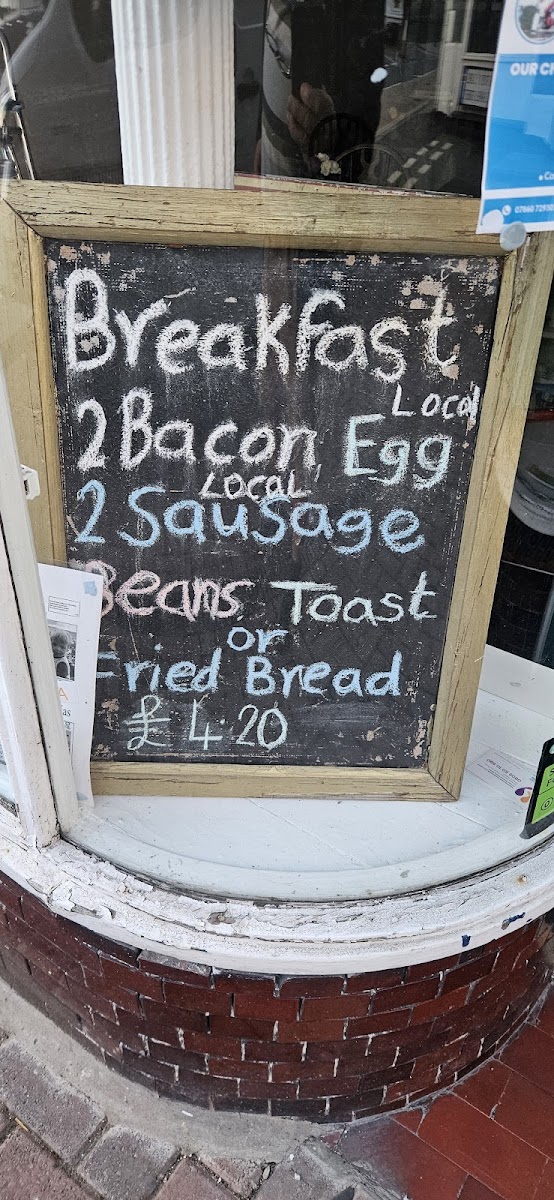 Breakfast
Local
2 Bacon Egg
Local
2 Sausage
Beans Toast
or
Fried Bread
£4.20
OUR CH
07860 7293